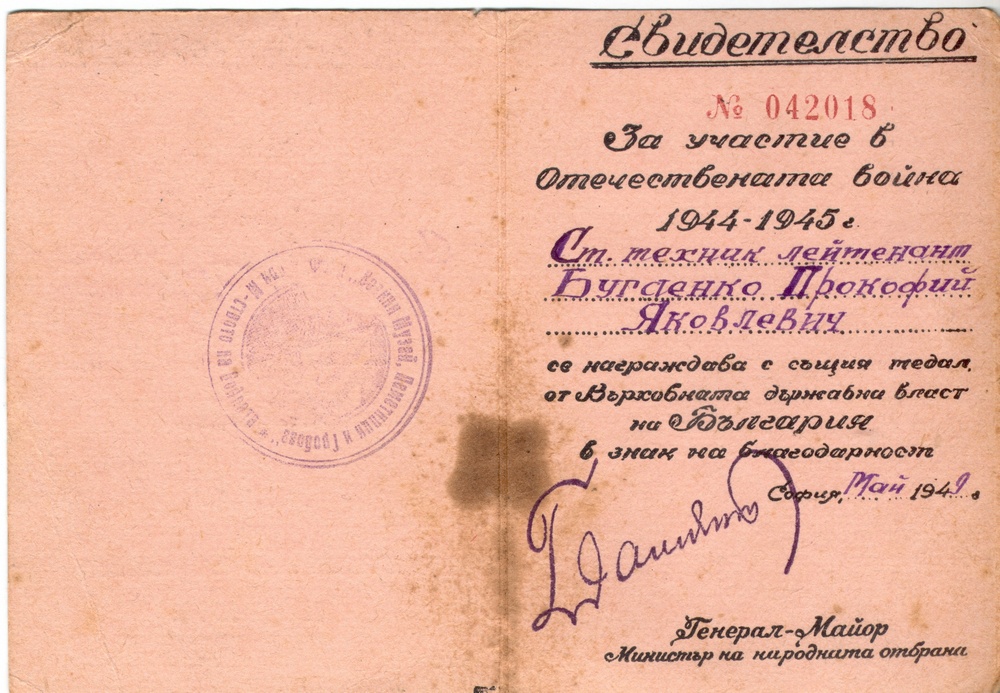 Свидетелство
№ 042018
За участие в
Отечествената война
1944-1945 г.
Ст. техник лейтенант
Бугаенко Прокофий
Яковлевич
се награждава с същия медал,
от Върховната държавна власт
на България
в знак на благодарност
София, Май 1949 г
Генерал-Майор
Министър на народната отбрана
Музей, Паметници и Гробове